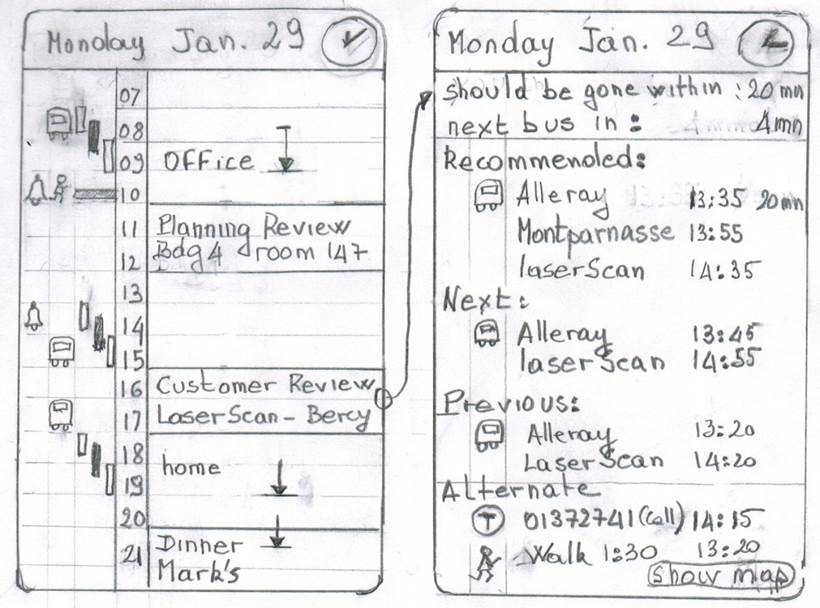 Monday Jan. 29
07
08
09
OFFice
10
11
Planning Review
Bdg 4 room 147
12
13
14
15
16
Customer Review
17
LaserScan - Bercy
18
home
19
20
21
Dinner
Mark's
Monday Jan. 29
should be gone within : 20 mn
next bus in : 4mn
Recommended:
Alleray 13:35 20mn
Montparnasse 13:55
laserScan 14:35
Next:
Alleray 13:45
laserScan 14:55
Previous:
Alleray 13:20
LaserScan 14:20
Alternate
T 01372741 (Call) 14:15
Walk 1:30 13:20
show map